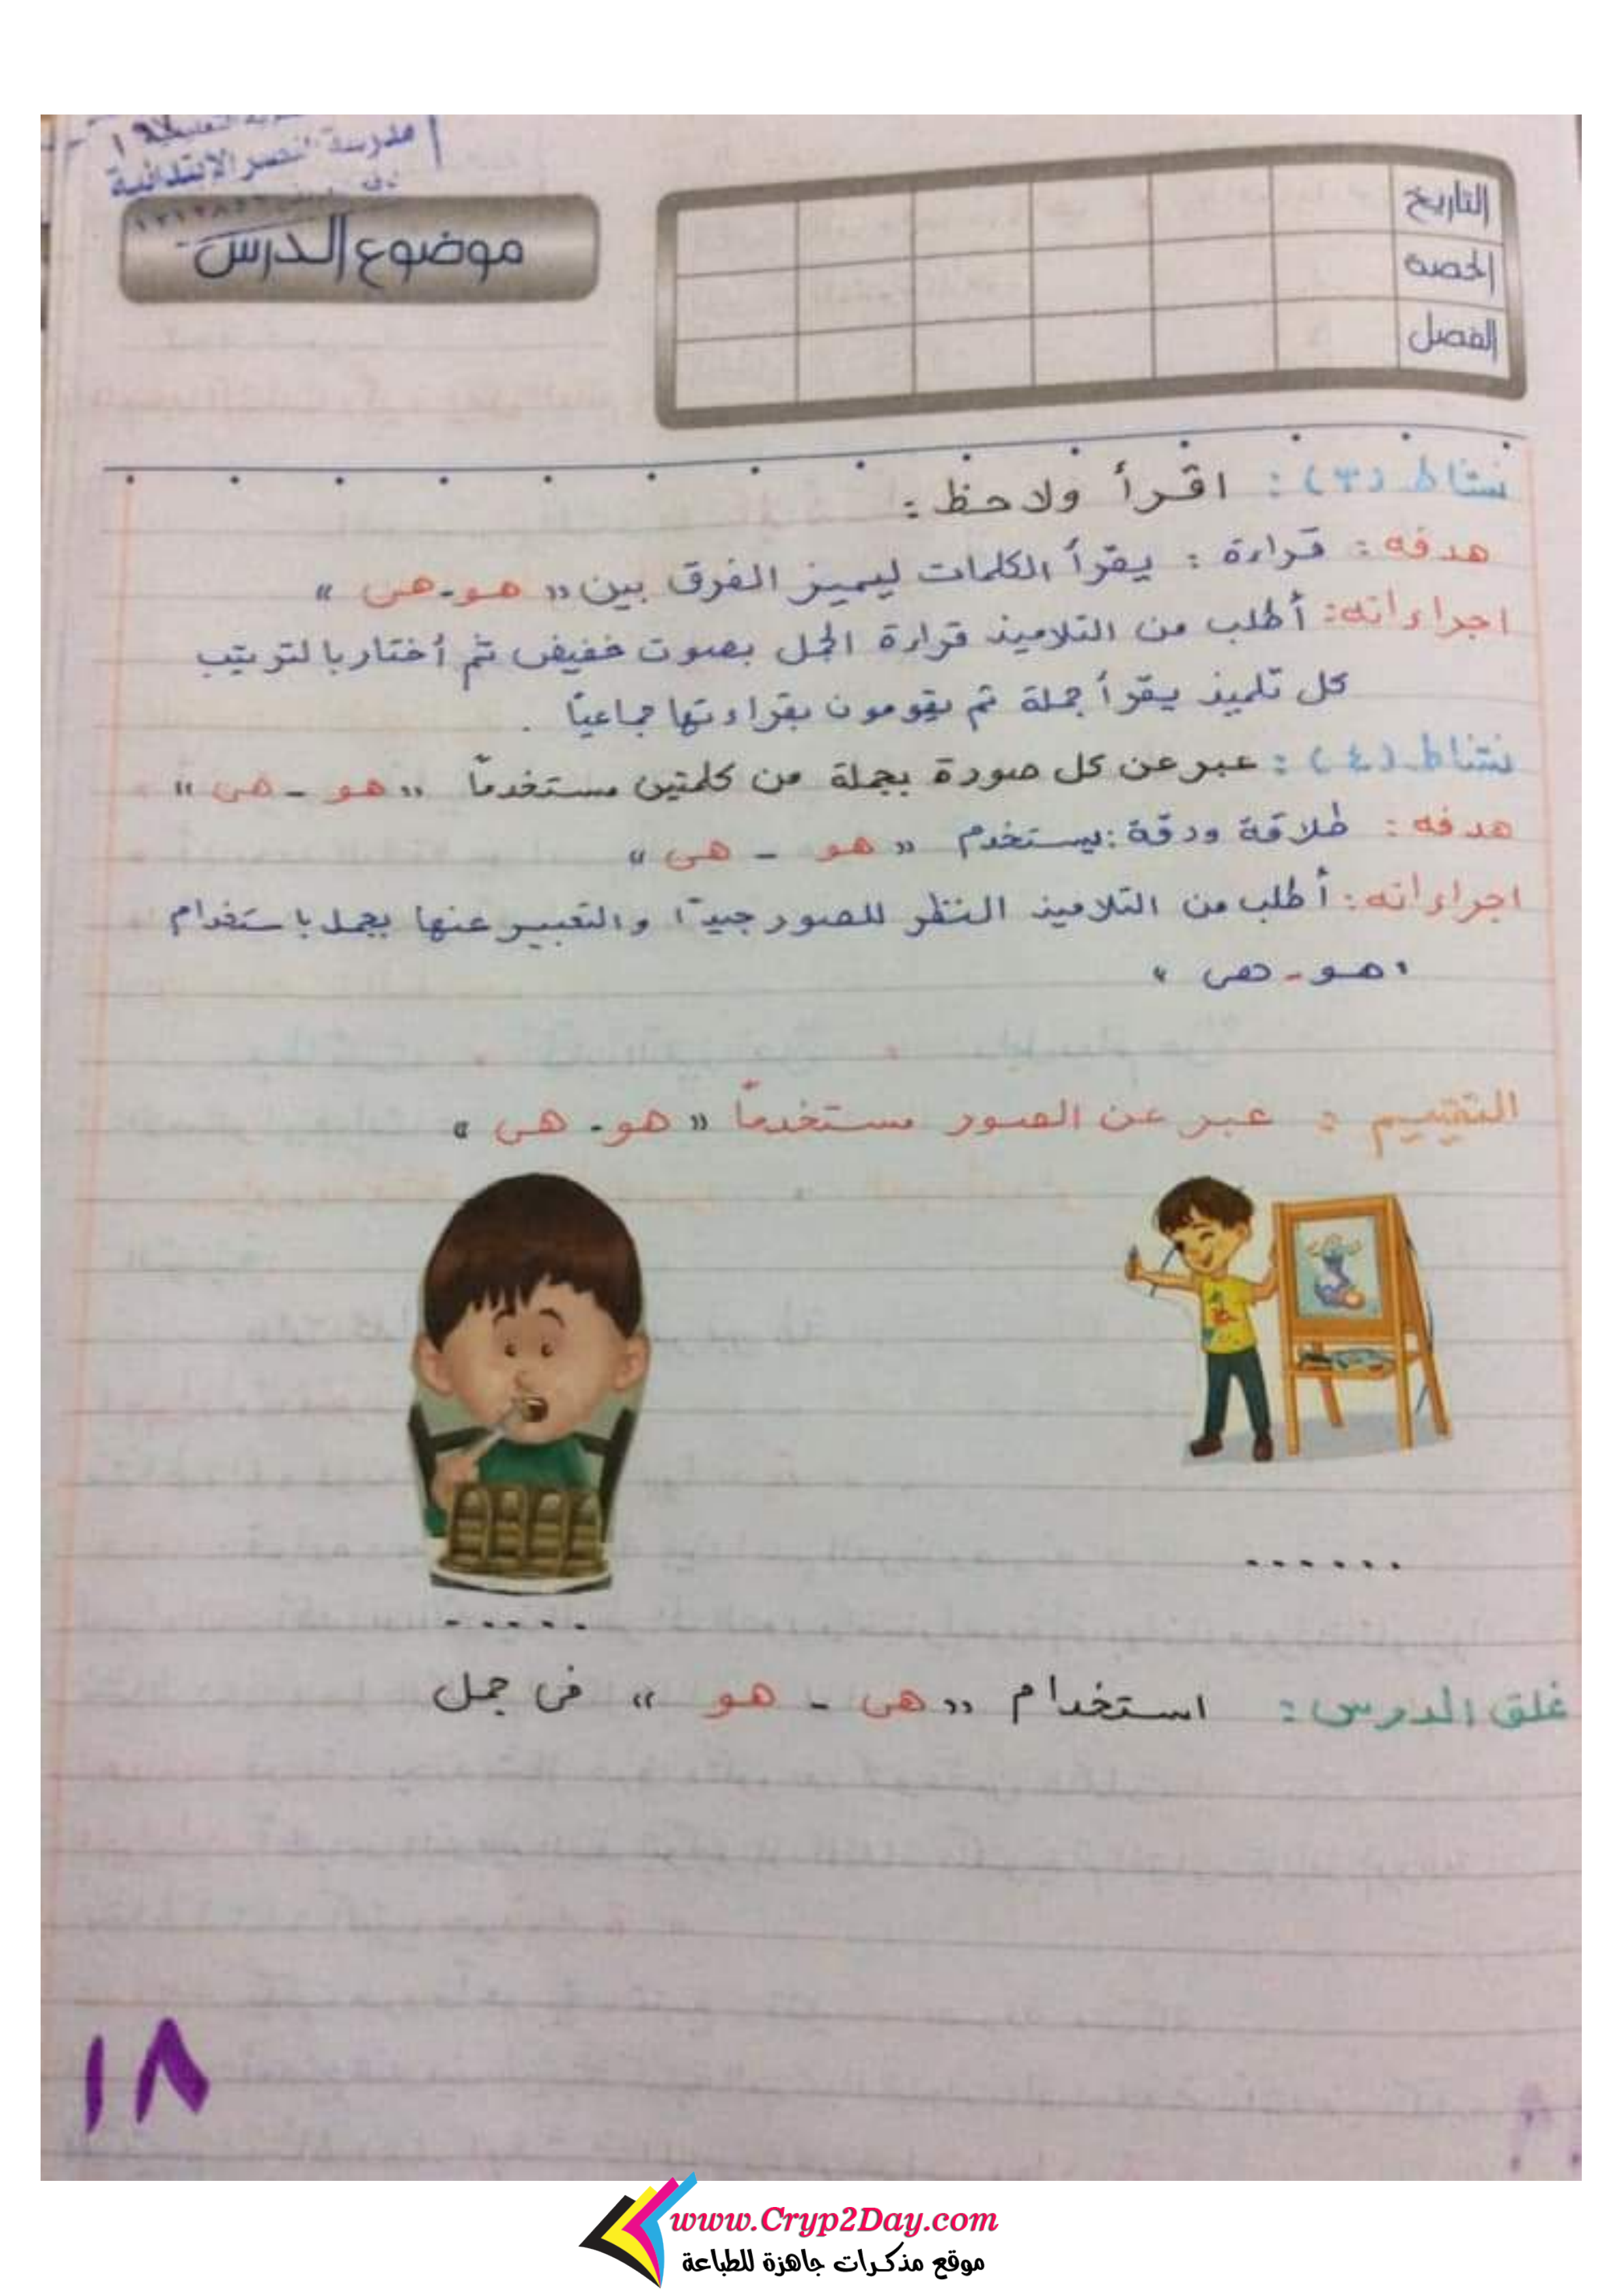 مدرسة النصر الابتدائية
موضوع الدرس
التاريخ
الحصة
الفصل
نشاط (٣) : اقرأ ولاحظ :
هدفه : قراءة : يقرأ الكلمات ليميز الفرق بين « هو - هى »
اجراءاته : أطلب من التلاميذ قراءة الجمل بصوت خفيض ثم أختار بالترتيب
كل تلميذ يقرأ جملة ثم يقومون بقراءتها جماعيًا .
نشاط (٤) : عبر عن كل صورة بجملة من كلمتين مستخدمًا « هو - هى »
هدفه : طلاقة ودقة : يستخدم « هو - هى »
اجراءاته : أطلب من التلاميذ النظر للصور جيدًا والتعبير عنها بجمل باستخدام
« هو - هى »
التقييم : عبر عن الصور مستخدمًا « هو - هى »
......
.....
غلق الدرس : استخدام « هى - هو » فى جمل
١٨
www.Cryp2Day.com
موقع مذكرات جاهزة للطباعة